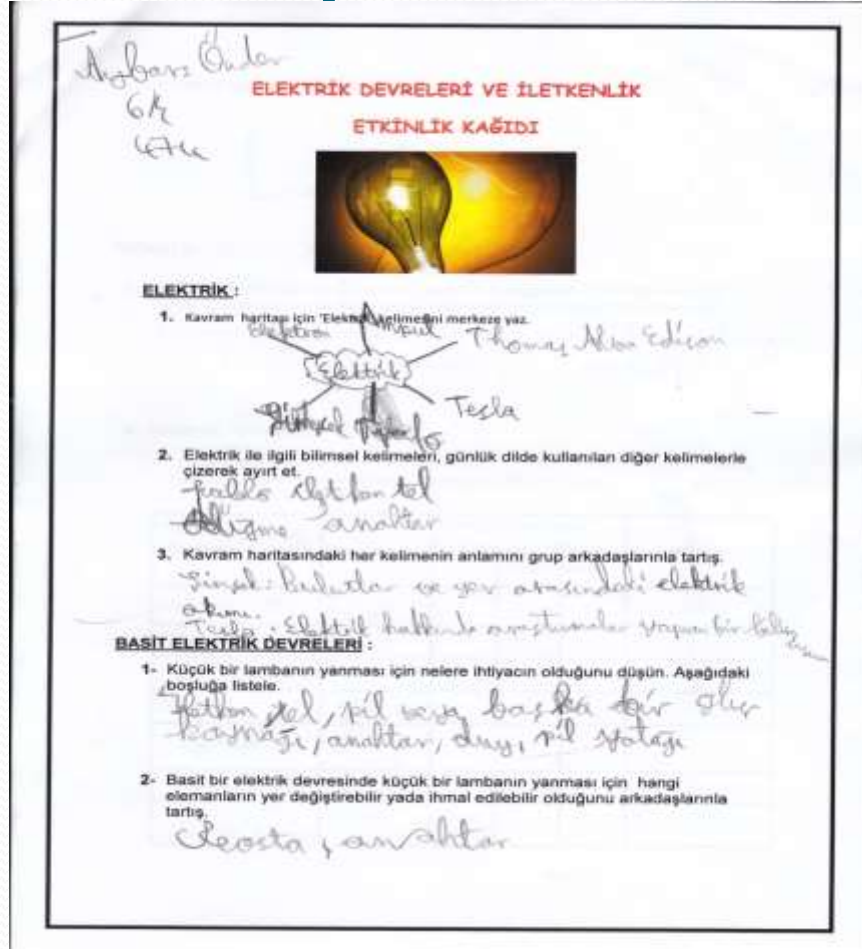 Aybars Önder
6/
474
ELEKTRİK DEVRELERİ VE İLETKENLİK
ETKİNLİK KAĞIDI
ELEKTRİK :
1. Kavram haritası için 'Elektrik' kelimesini merkeze yaz.
Elektron Ampul Thomas Alva Edison
Elektrik
Şimşek Tesla
2. Elektrik ile ilgili bilimsel kelimeleri, günlük dilde kullanılan diğer kelimelerle
çizerek ayırt et.
kablo iletken tel
düğme anahtar
3. Kavram haritasındaki her kelimenin anlamını grup arkadaşlarınla tartış.
Şimşek: Bulutlar ve yer arasındaki elektrik
akımı.
Tesla: Elektrik hakkında araştırmalar yapan bir
BASİT ELEKTRİK DEVRELERİ :
1- Küçük bir lambanın yanması için nelere ihtiyacın olduğunu düşün. Aşağıdaki
boşluğa listele.
İletken tel, pil veya başka bir güç
kaynağı, anahtar, duy, pil yatağı
2- Basit bir elektrik devresinde küçük bir lambanın yanması için hangi
elemanların yer değiştirebilir yada ihmal edilebilir olduğunu arkadaşlarınla
tartış.
Reosta, anahtar